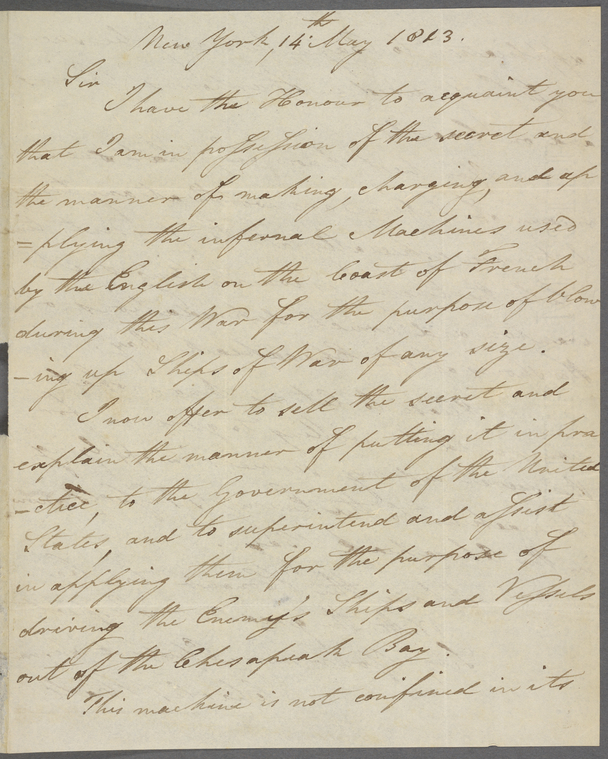 New York, 14th May 1813.
Sir
I have the Honour to acquaint you
that I am in possession of the secret and
the manner of making, charging, and ap
=plying the infernal Machines used
by the English on the Coast of French
during this War for the purpose of blow
-ing up Ships of War of any size.
I now offer to sell the secret and
explain the manner of putting it in pra
-ctice, to the Government of the United
States, and to superintend and assist
in applying them for the purpose of
driving the Enemy's Ships and Vessels
out of the Chesapeak Bay.
This machine is not confined in its